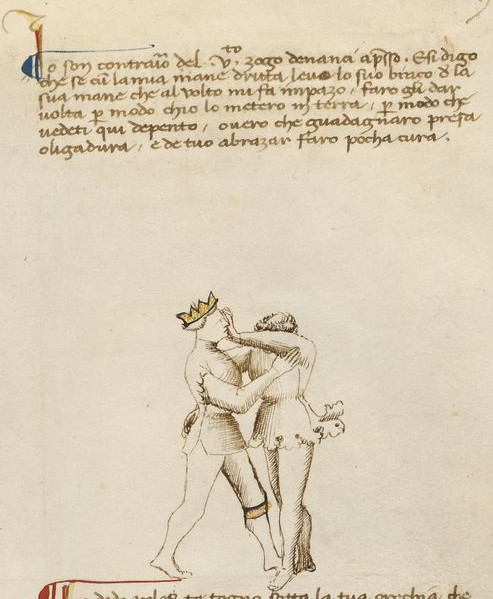 Io son contrario del .V.to zogo denanci apresso. E si digo
che se cum la mia mane dritta levo lo suo brazo de la
sua mane che al volto mi fa impazo, faro gli dar
volta per modo ch'io lo metero in terra, per modo che
vedeti qui depento, overo che guadagnaro presa
o ligadura, e de tuo abrazar faro pocha cura.